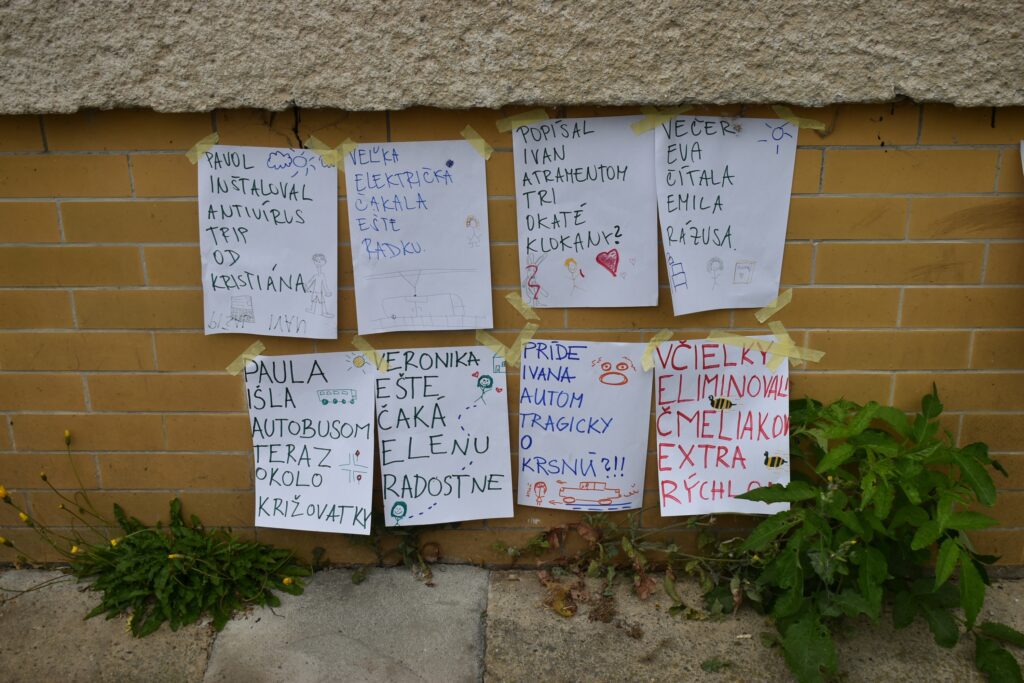 PAVOL
INŠTALOVAL
ANTIVÍRUS
TRIP
OD
KRISTIÁNA
VEĽKÁ
ELEKTRIČKA
ČAKALA
EŠTE
RADKU.
POPÍSAL
IVAN
ATRAMENTOM
TRI
OKATÉ
KLOKANY?
VEČER
EVA
ČÍTALA
EMILA
RÁZUSA.
PAULA
IŠLA
AUTOBUSOM
TERAZ
OKOLO
KRIŽOVATKY
VERONIKA
EŠTE
ČAKÁ
ELENU
RADOSTNE
PRÍDE
IVANA
AUTOM
TRAGICKY
O
KRSNÚ?!!
VČIELKY
ELIMINOVALI
ČMELIAKOV
EXTRA